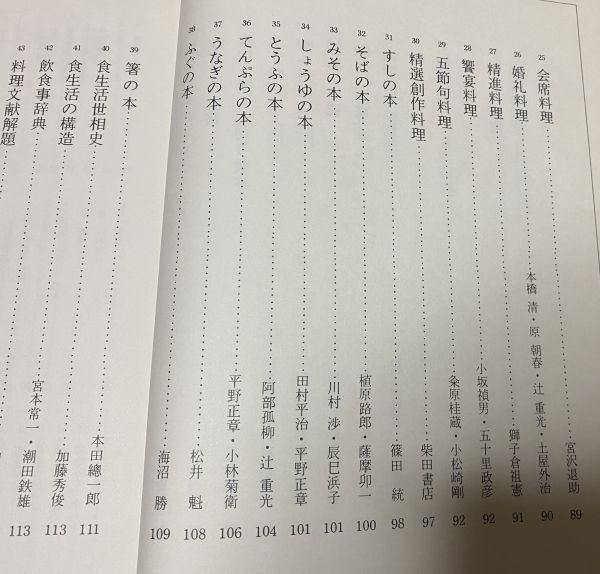 25 会席料理……宮沢退助 89
26 婚礼料理……本橋 清・原 朝春・辻 重光・土屋外治 90
27 精進料理……獅子倉祖憲 91
28 饗宴料理……小坂禎男・五十里政彦 92
29 五節句料理……粂原桂蔵・小松崎剛 92
30 精選創作料理……柴田書店 97
31 すしの本……篠田 統 98
32 そばの本……植原路郎・薩摩卯一 100
33 みその本……川村 渉・辰巳浜子 101
34 しょうゆの本……田村平治・平野正章 101
35 とうふの本……阿部孤柳・辻 重光 104
36 てんぷらの本……平野正章・小林菊衛 106
37 うなぎの本……松井 魁 108
38 ふぐの本……海沼 勝 109
39 箸の本……本田總一郎 111
40 食生活世相史……加藤秀俊 113
41 食生活の構造……宮本常一・潮田鉄雄 113
42 飲食事辞典……
43 料理文献解題……